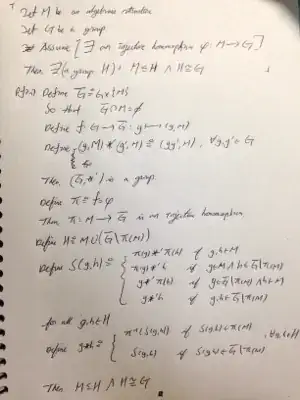 Let M be an algebraic structure
Let G be a group
Assume [∃ an injective homomorphism φ: M → G]
Then ∃(a group H): M ≤ H ∧ H ≅ G
Proof) Define G̅ ≡ G×{M}
So that G̅∩M=φ
Define f: G → G̅ : g ↦ (g,M)
Define (g,M) *' (g',M) ≡ (gg',M), ∀g,g'∈G
Then (G̅,*') is a group
Define π ≡ f∘φ
Then π: M → G̅ is an injective homomorphism
Define H ≡ M∪(G̅\π(M))
Define S(g,h) ≡ { π(g)*'π(h) if g,h∈M
π(g)*'h if g∈M ∧ h∈G̅\π(M)
g*'π(h) if g∈G̅\π(M) ∧ h∈M
g*'h if g,h∈G̅\π(M)
for all g,h∈H
Define g*h ≡ { π⁻¹(S(g,h)) if S(g,h)∈π(M), ∀g,h∈H
S(g,h) if S(g,h)∈G̅\π(M)
Then M≤H ∧ H≅G